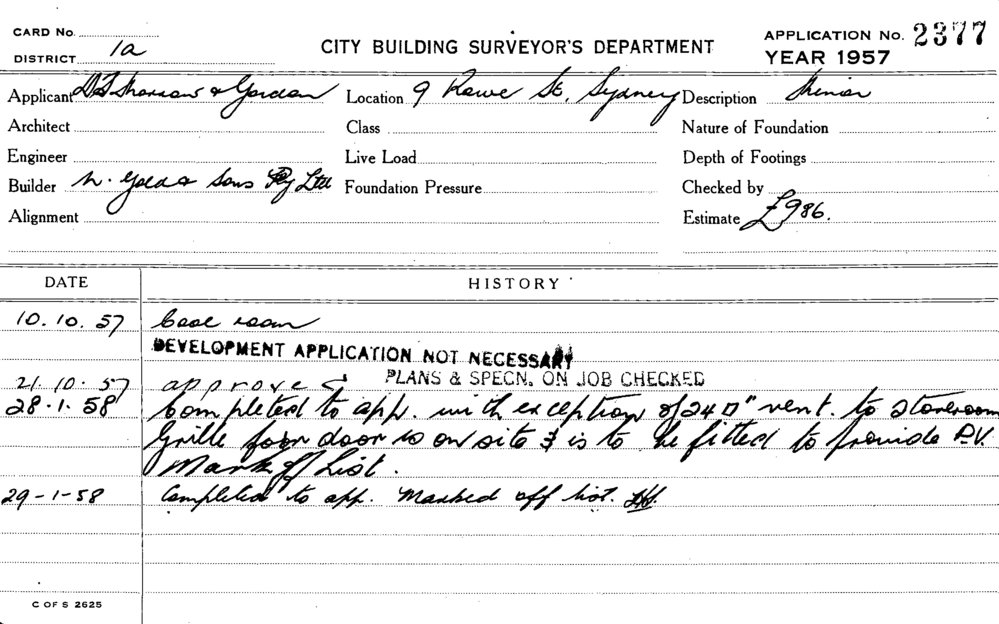 CARD No.
DISTRICT 1a
CITY BUILDING SURVEYOR'S DEPARTMENT
APPLICATION No. 2377
YEAR 1957
Applicant D.T. Morrow & Gordon Location 9 Rowe St, Sydney Description Minor
Architect Class Nature of Foundation
Engineer Live Load Depth of Footings
Builder & Sons Pty Ltd Foundation Pressure Checked by
Alignment Estimate £986.
DATE HISTORY
10.10.57 Cool room
DEVELOPMENT APPLICATION NOT NECESSARY
PLANS & SPECN. ON JOB CHECKED
21.10.57 approved
28.1.58 Completed to app. with exception of 240" vent. to storeroom
Grille for door is on site & is to be fitted to provide P.V.
Mark off List.
29-1-58 Completed to app. Marked off list.
C OF S 2625